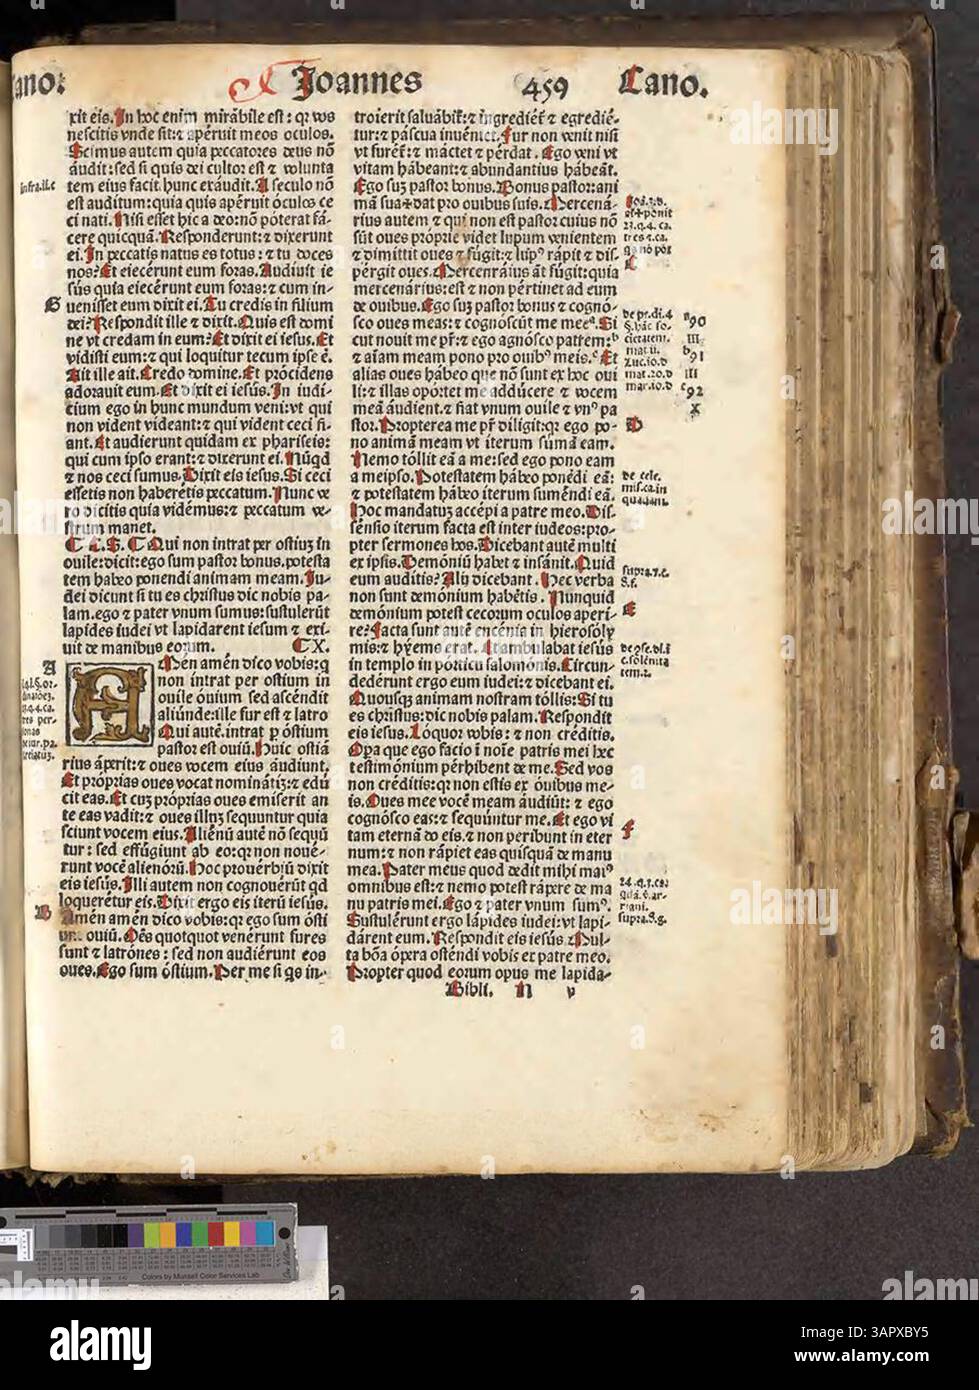 ano.
Joannes
459
Cano.
rit eis. In hoc enim mirabile est: qr vos
nescitis vnde sit: ⁊ apéruit meos oculos.
Scimus autem quia peccatores deus nō
áudit: sed si quis dei cultor est ⁊ volunta
tem eius facit hunc exáudit. A seculo nō
est auditum: quia quis apéruit óculos ce
ci nati. Nisi esset hic a deo: nō póterat fá-
cere quicquā. Responderunt: ⁊ dixerunt
ei. In peccatis natus es totus: ⁊ tu doces
nos? Et eiecérunt eum foras. Audiuit ie
sús quia eiecérunt eum foras: ⁊ cum in-
uenisset eum dixit ei. Tu credis in filium
dei? Respondit ille ⁊ dixit. Quis est domi
ne vt credam in eum? Et dixit ei iesus. Et
vidisti eum: ⁊ qui loquitur tecum ipse ē.
Ait ille ait. Credo domine. Et prócidens
adorauit eum. Et dixit ei iesús. In iudí-
cium ego in hunc mundum veni: vt qui
non vident videant: ⁊ qui vident ceci fi-
ant. Et audierunt quidam ex phariseis:
qui cum ipso erant: ⁊ dixerunt ei. Nūqd
⁊ nos ceci sumus. Dixit eis iesús. Si ceci
essetis non haberétis peccatum. Nunc ve
ro dicitis quia vidémus: ⁊ peccatum ve-
strum manet.
Qui non intrat per ostiuȝ in
ouile: dicit: ego sum pastor bonus. potesta
tem habeo ponendi animam meam. Ju-
dei dicunt si tu es christus dic nobis pa-
lam. ego ⁊ pater vnum sumus: sustulerūt
lapides iudei vt lapidarent iesum ⁊ exi-
uit de manibus eorum. X.
A
Amén amén dico vobis: q
non intrat per ostium in
ouile óuium sed ascéndit
aliúnde: ille fur est ⁊ latro
Qui autē. intrat p óstium
pastor est ouiū. Huic ostiá
rius áperit: ⁊ oues vocem eius áudiunt.
Et próprias oues vocat nominátiȝ: ⁊ edú
cit eas. Et cuȝ próprias oues emiserit an
te eas vadit: ⁊ oues illuȝ sequuntur quia
sciunt vocem eius. Aliénū autē nō sequū
tur: sed effúgiunt ab eo: qr non nouē-
runt vocē alienórū. Hoc prouérbiū dixit
eis iesús. Illi autem non cognouérūt qd
loquerétur eis. Dixit ergo eis iterū iesús.
Amén amén dico vobis: qr ego sum ósti
ouiū. Oēs quotquot venérunt fures
sunt ⁊ latrónes: sed non audiérunt eos
oues. Ego sum óstium. Per me si qs in-
troíerit saluábit: ⁊ ingrediét ⁊ egredié-
tur: ⁊ páscua inuéniet. Fur non venit nisi
vt furét: ⁊ máctet ⁊ pérdat. Ego veni vt
vitam hábeant: ⁊ abundantius hábeāt.
Ego suȝ pastor bonus. Bonus pastor: ani
mā suā dat pro ouibus suis. Mercená-
rius autem ⁊ qui non est pastor cuius nō
sūt oues próprie videt lupum venientem
⁊ dimittit oues ⁊ fúgit: ⁊ lupꝰ rápit ⁊ dis-
pérgit oues. Mercennáius āt fúgit: quia
mercenárius: est ⁊ non pértinet ad eum
de ouibus. Ego suȝ pastor bonus ⁊ cognó-
sco oues meas: ⁊ cognóscūt me mee. Si
cut nouit me pr̄: ⁊ ego agnósco patrem:
⁊ aīam meam pono pro ouibꝰ meis. Et
alias oues hábeo que nō sunt ex hoc oui
li: ⁊ illas opórtet me addúcere ⁊ vocem
meā áudient. ⁊ fiat vnum ouile ⁊ vnꝰ pa
stor. Propterea me pr̄ díligit: qr ego po-
no animā meam vt iterum súmā eam.
Nemo tóllit eā a me: sed ego pono eam
a meipso. Potestatem hábeo ponédi eā:
⁊ potestatem hábeo iterum suméndi eā.
Hoc mandatuȝ accépi a patre meo. Dis-
sénsio iterum facta est inter iudeos: pro-
pter sermones hos. Dicebant autē multi
ex ipsis. Demóniū habet ⁊ insánit. Quid
eum auditis? Alij dicebant. Hec verba
non sunt demónium habétis. Nunquid
demónium potest cecorum oculos aperí-
re? Facta sunt autē encénia in hierosóly
mis: ⁊ hyems erat. Et ambulabat iesús
in templo in pórticu salomónis. Circun-
dedérunt ergo eum iudei: ⁊ dicebant ei.
Quousqȝ animam nostram tóllis: Si tu
es christus: dic nobis palam. Respondit
eis iesus. Loquor vobis: ⁊ non créditis.
Opa que ego facio i noīe patris mei hec
testimónium pérhibent de me. Sed vos
non créditis: qr non estis ex óuibus me-
is. Oues mee vocē meam áudiūt: ⁊ ego
cognósco eas: ⁊ sequúntur me. Et ego vi
tam eternā do eis. ⁊ non peribunt in eter
num: ⁊ non rápiet eas quisquā de manu
mea. Pater meus quod dedit mihi maiꝰ
omnibus est: ⁊ nemo potest rápere de ma
nu patris mei. Ego ⁊ pater vnum sumꝰ.
Sustulérunt ergo lápides iudei: vt lapi-
dárent eum. Respondit eis iesús. Mul-
ta bōa ópera osténdi vobis ex patre meo.
Propter quod eorum opus me lapida-
Bibli. N v
G
A
B
infra.ii.c
C
D
E
F
90
III
91
III
92
X
de cele.
mis.ca.in
quadam.
supra.7.c.
8.f.
supra.8.g.
alamy
Image ID: 3APXBY5
www.alamy.com